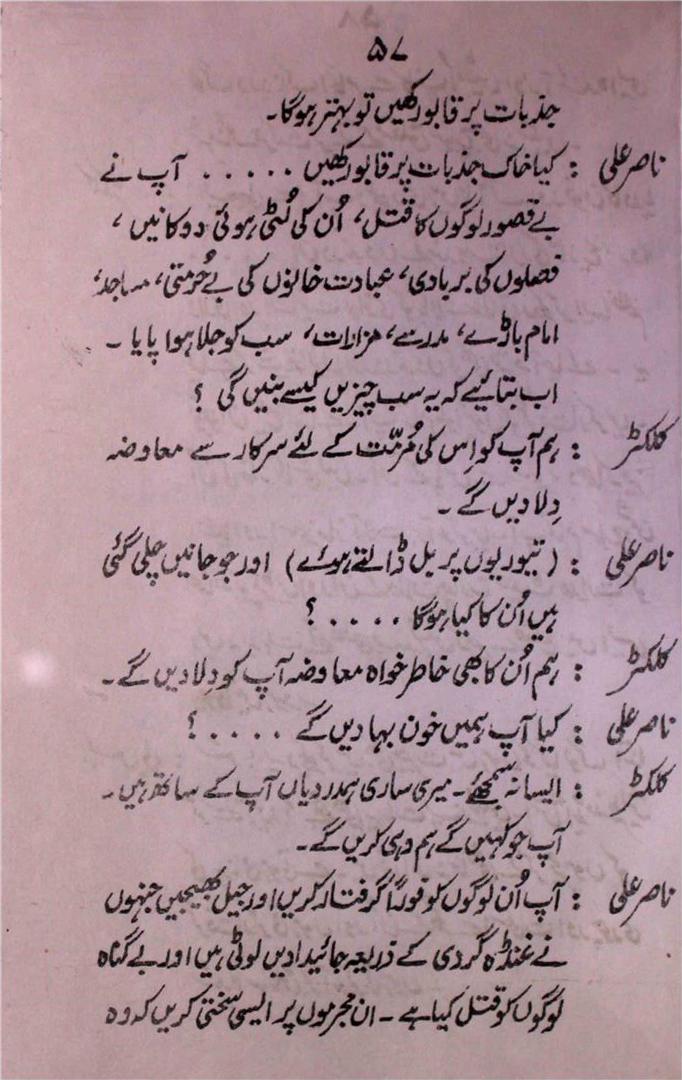 ۵۷
جذبات پر قابو رکھیں تو بہتر ہوگا۔
ناصر علی : کیا خاک جذبات پر قابو رکھیں ..... آپ نے
بے قصور لوگوں کا قتل، اُن کی لُٹی ہوئی دوکانیں،
فصلوں کی بربادی، عبادت خانوں کی بے حُرمتی، مساجد،
امام باڑے، مدرسے، مزارات، سب کو جلا ہوا پایا ۔
اب بتائیے کہ یہ سب چیزیں کیسے بنیں گی ؟
کلکٹر : ہم آپ کو اِس کی مُرمّت کے لئے سرکار سے معاوضہ
دِلا دیں گے ۔
ناصر علی : (تیوریوں پر بل ڈالتے ہوئے) اور جو جانیں چلی گئی
ہیں اُن کا کیا ہوگا ....؟
کلکٹر : ہم اُن کا بھی خاطر خواہ معاوضہ آپ کو دِلا دیں گے۔
ناصر علی : کیا آپ ہمیں خون بہا دیں گے ....؟
کلکٹر : ایسا نہ سمجھئے۔ میری ساری ہمدردیاں آپ کے ساتھ ہیں۔
آپ جو کہیں گے ہم وہی کریں گے۔
ناصر علی : آپ اُن لوگوں کو فوراً گرفتار کریں اور جیل بھیجیں جنہوں
نے غنڈہ گردی کے ذریعہ جائیدادیں لوٹی ہیں اور بے گناہ
لوگوں کو قتل کیا ہے ۔ ان مجرموں پر ایسی سختی کریں کہ وہ